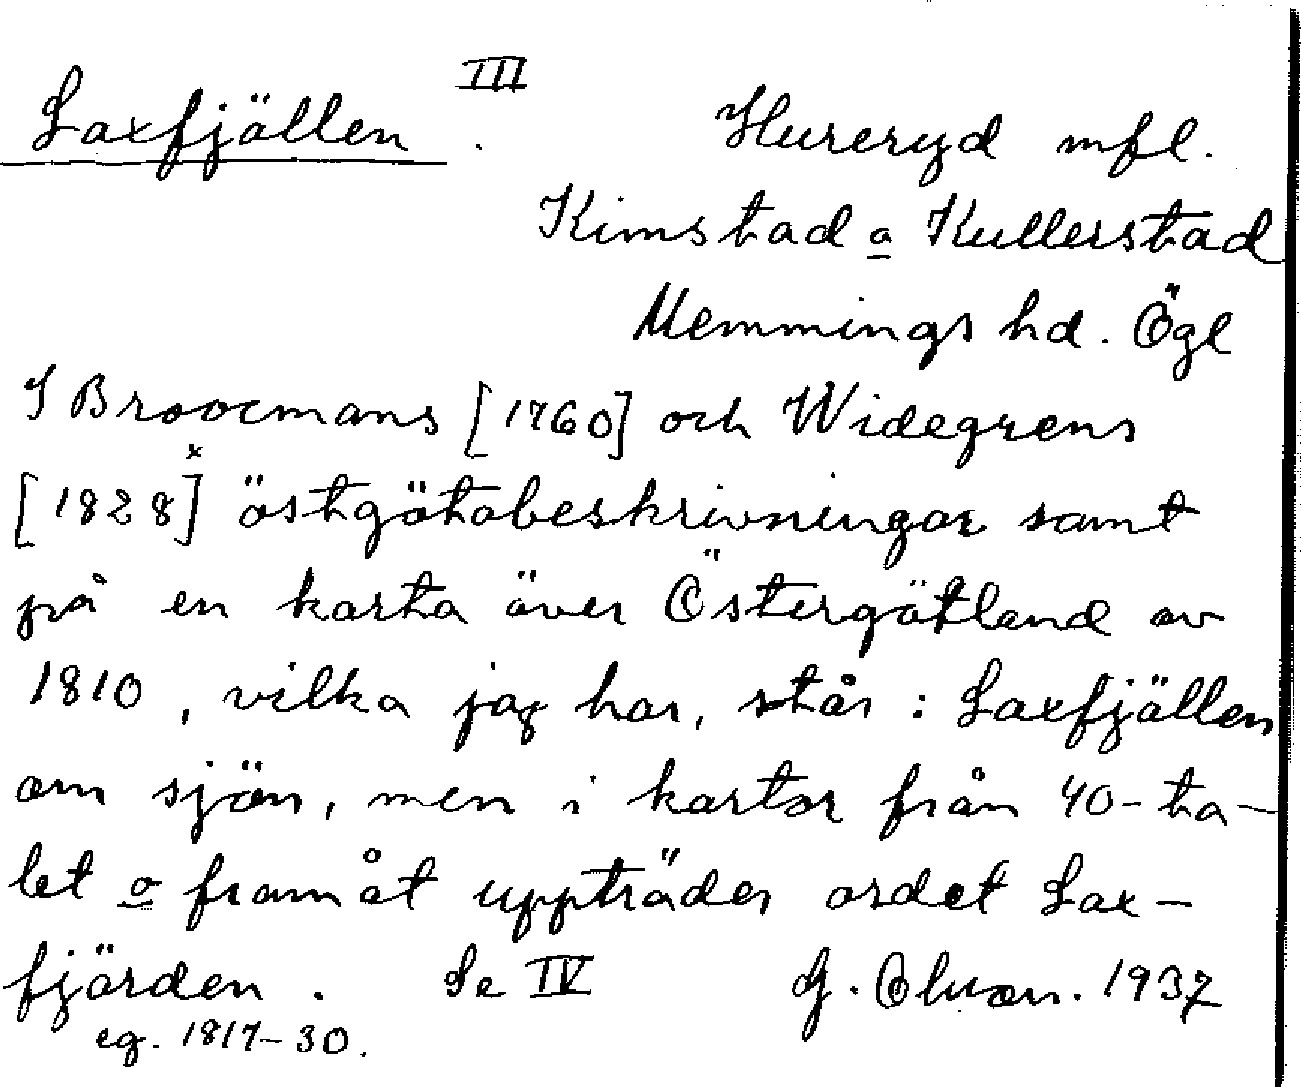 III
Laxfjällen. Hureryd mfl.
Kimstad o Kullerstad
Memmings hd. Ögl
I Broocmans [1760] och Widegrens
x
[1828] östgötabeskrivningar samt
på en karta över Östergötland av
1810, vilka jag har, står: Laxfjällen
om sjön, men i kartor från 40-ta-
let o framåt uppträder ordet Lax-
fjärden. Se IV G. 1937
eg. 1817-30.